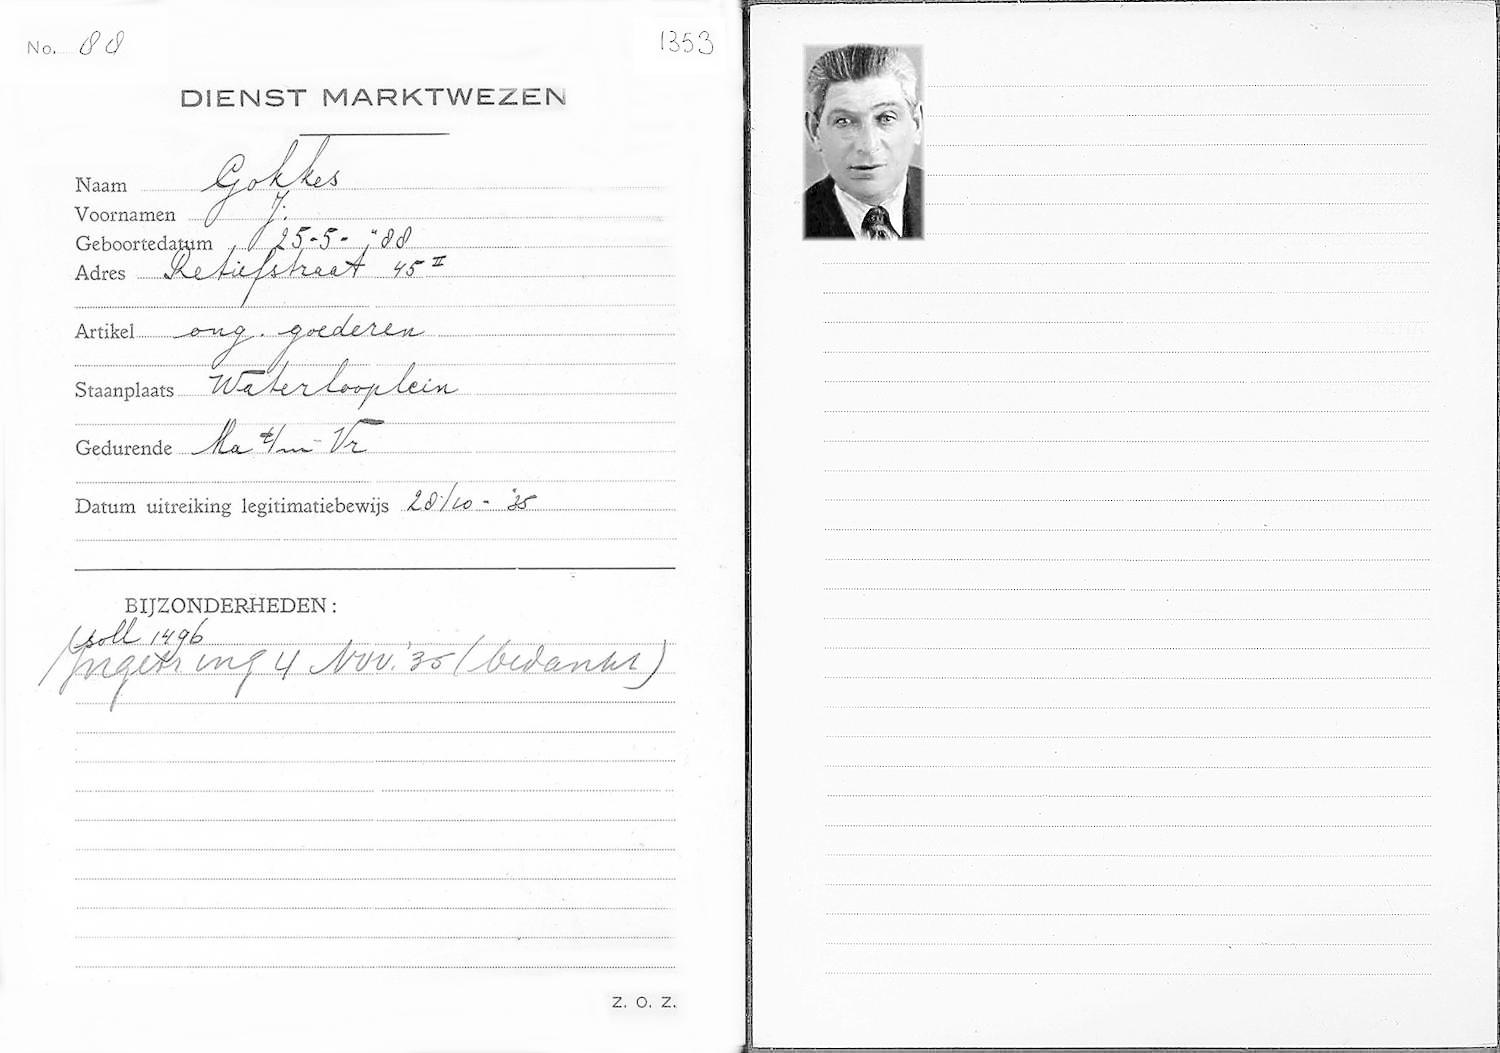 No. 88
1353
DIENST MARKTWEZEN
Naam Gokkes
Voornamen J.
Geboortedatum 25-5-'88
Adres Retiefstraat 45 II
Artikel ong. goederen
Staanplaats Waterlooplein
Gedurende Ma t/m Vr
Datum uitreiking legitimatiebewijs 28/10-'35
BIJZONDERHEDEN:
soll 1496
Ingetr ing 4 Nov. '35 (bedankt)
Z. O. Z.